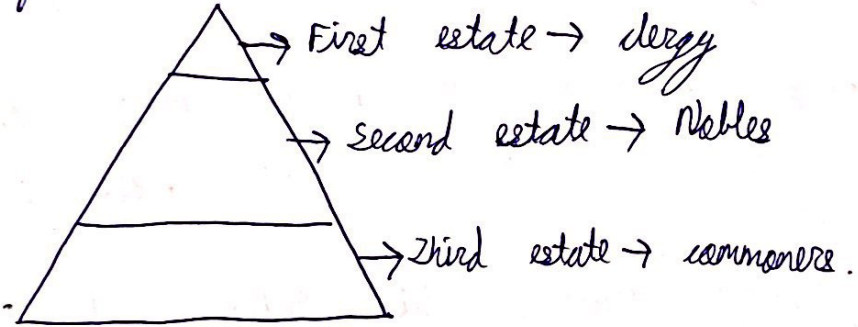 First estate → clergy
second estate → Nobles
Third estate → commoners.